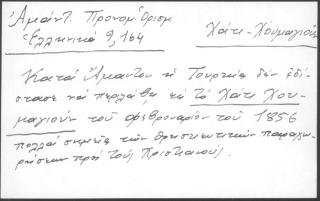 Ἀμάντ. Προνομ. Ὁρισμ
Ἑλληνικά 9, 164
Χάτι-Χουμαγιούν
Κατά Ἄμαντον ἡ Τουρκία δέν ἐδί-
στασε νά περιλάβῃ εἰς τό Χάτι Χου-
μαγιούν τοῦ φεβρουαρίου τοῦ 1856
πολλά σημεῖα τῶν θρησκευτικῶν παραχω-
ρήσεων πρός τούς Χριστιανούς.